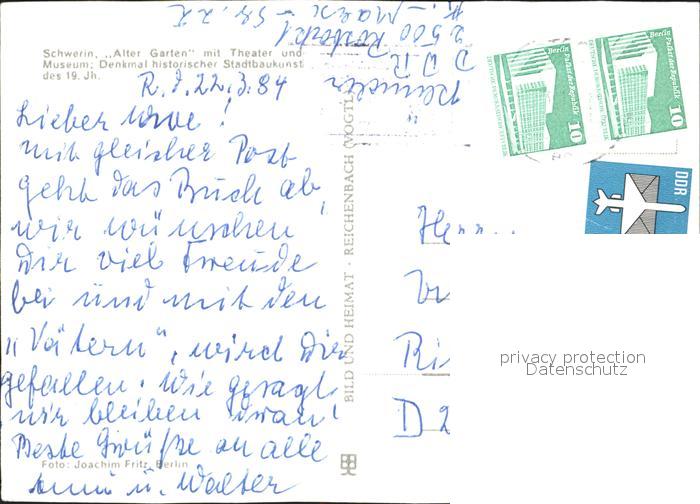 Schwerin, „Alter Garten" mit Theater und
Museum; Denkmal historischer Stadtbaukunst
des 19. Jh.
R. d. 22.3.84
Lieber Uwe!
mit gleicher Post
geht das Buch ab,
wir wünschen
Dir viel Freude
bei und mit den
„Vätern", wird Dir
gefallen. Wie gesagt
wir bleiben dran!
Beste Grüße an alle
u. Walter
Foto: Joachim Fritz, Berlin
BILD UND HEIMAT · REICHENBACH (VOGTL
2500 Rostock
DDR
Berlin Palast der Republik
10
Berlin Palast der Republik
10
DDR
Herrn
Ri
D 2
privacy protection
Datenschutz